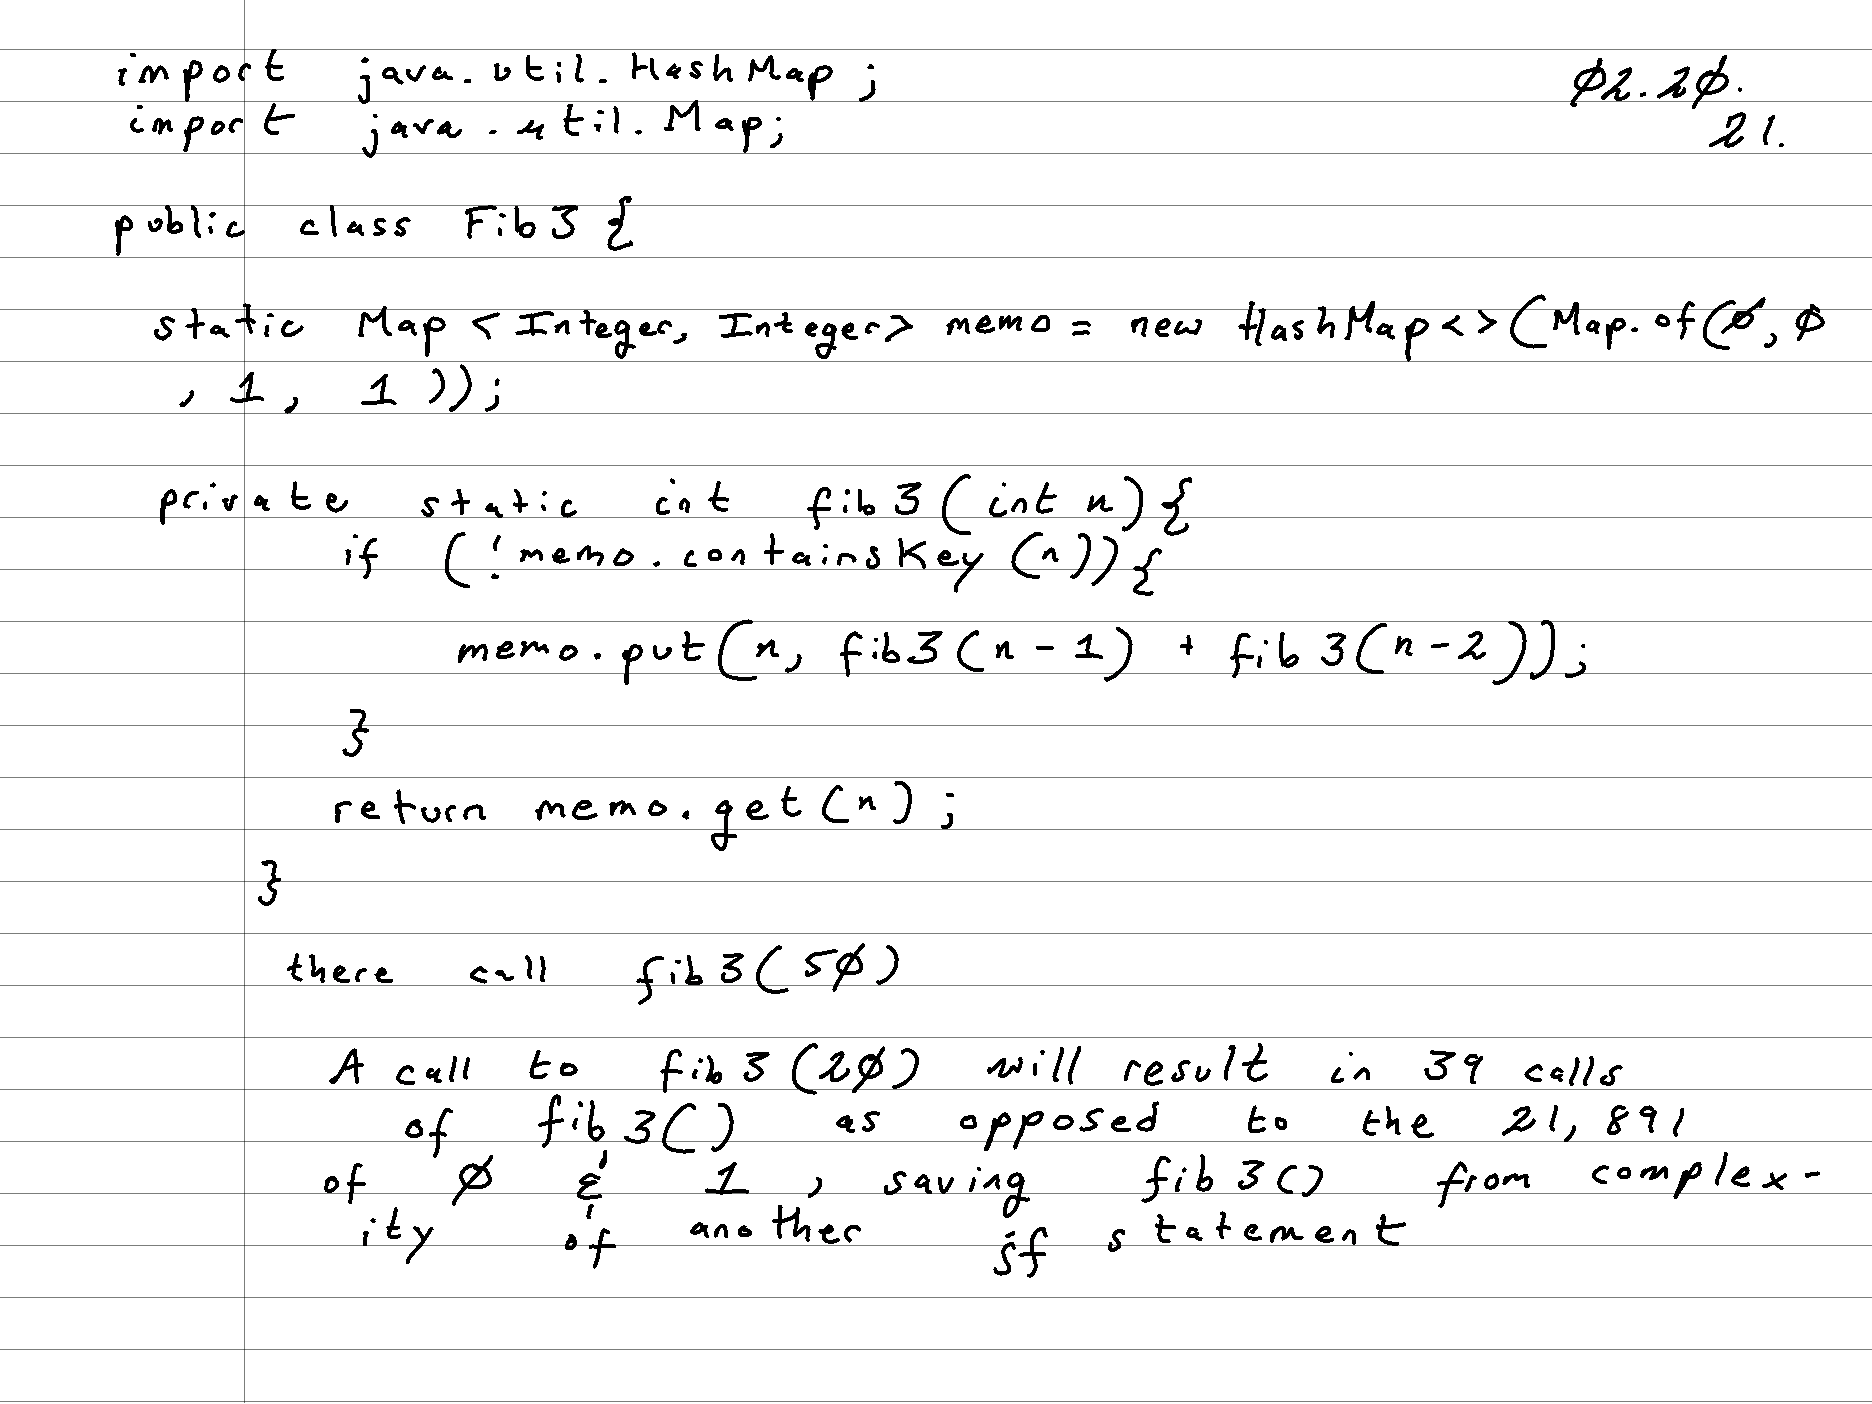 import java.util.HashMap;
02.20.
import java.util.Map;
21.
public class Fib3 {
static Map<Integer, Integer> memo = new HashMap<>(Map.of(0, 0
, 1, 1 ));
private static int fib3(int n){
if (!memo.containsKey(n)){
memo.put(n, fib3(n-1) + fib3(n-2));
}
return memo.get(n);
}
there call fib3(50)
A call to fib3(20) will result in 39 calls
of fib3() as opposed to the 21,891
of 0 & 1, saving fib3() from complex-
ity of another if statement